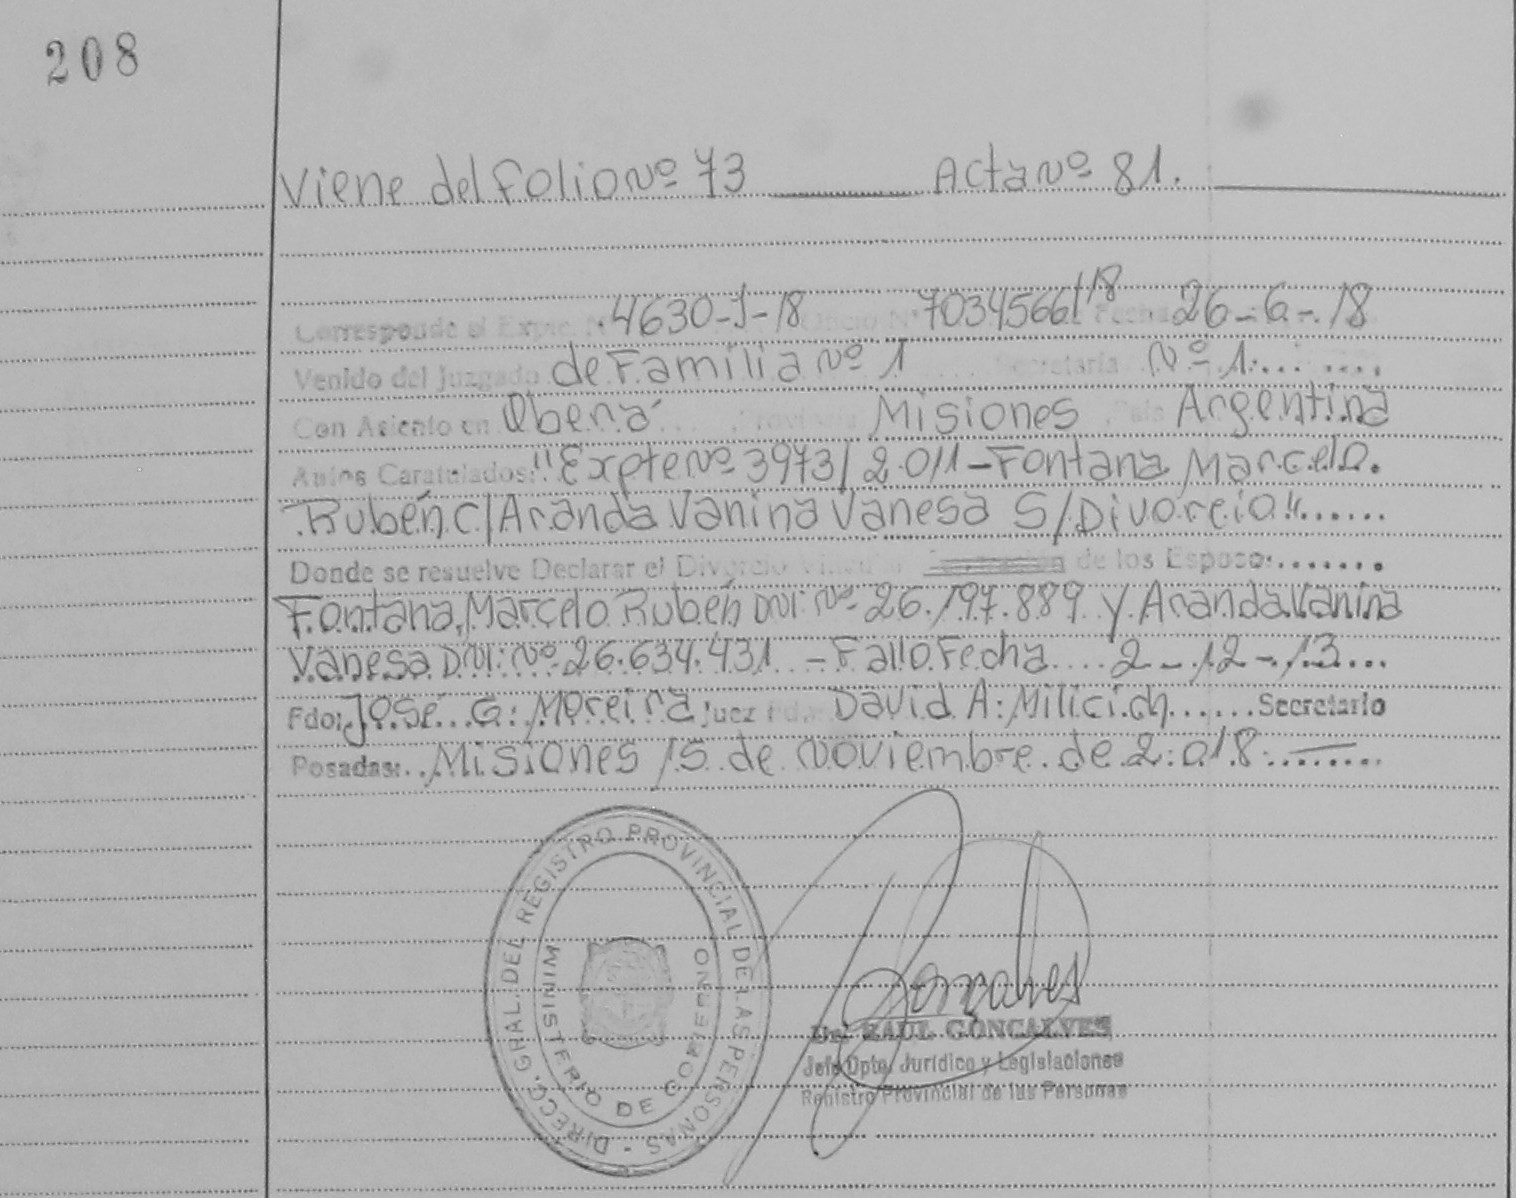 208
Viene del folio Nº 73 Acta Nº 81.
Corresponde al Expte. N 4630-J-18 Oficio Nº 70345661/18 Fecha 26-6-18
Venido del Juzgado de Familia Nº 1 Secretaría Nº 1
Con Asiento en Oberá Provincia Misiones País Argentina
Autos Caratulados: "Expte Nº 3973/2.011-Fontana Marcelo
Rubén C/ Aranda Vanina Vanesa S/Divorcio"
Donde se resuelve Declarar el Divorcio de los Esposo
Fontana, Marcelo Rubén DNI: Nº 26.197.889 y Aranda Vanina
Vanesa DNI: Nº 26.634.431 - Fallo Fecha 2-12-13
Fdo: José G. Moreira Juez Fdo: David A. Milicich Secretario
Posadas: Misiones 15 de Noviembre de 2.018
DIRECC. GRAL. DEL REGISTRO PROVINCIAL DE LAS PERSONAS -
MINISTERIO DE GOBIERNO
Goncalves
RAUL GONCALVES
Jefe Dpto. Jurídico y Legislaciones
Registro Provincial de las Personas